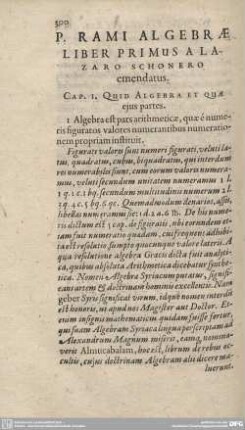 300
P. RAMI ALGEBRÆ
LIBER PRIMUS A LA-
ZARO SCHONERO
emendatus.
CAP. I. QUID ALGEBRA ET QUÆ
ejus partes.
1 Algebra est pars arithmeticæ, quæ è nume-
ris figuratis valores numerantibus numeratio-
nem propriam instituit.
Figurati valoris sunt numeri figurati, velut: la-
tus, quadratus, cubus, biquadratus, qui interdum
res numerabiles sunt, cum eorum valores numera-
mus, velut: secundum unitatem numeramus 1 l.
1 q. 1 c. 1 bq. secundum multitudinem numeramus 2 l.
3 q. 4 c. 5 bq. 6 Quemadmodum denarios, asses,
libellas numeramus
ris dictum est 3 cap. de figuratis, ubi eorundem et-
iam fuit numeratio quædam,
ta est resolutio sumpto quocunque valore lateris. A
qua resolutione algebra Græcis dicta fuit analyti-
ca, quibus absoluta Arithmetica dicebatur synthe-
tica. Nomen Algebra Syriacum putatur, signifi-
cans artem & doctrinam hominis excellentis. Nam
geber Syris significat virum, idque nomen interdum
est honoris, ut apud nos Magister aut Doctor. Et-
enim insignis mathematicus quidam fuisse fertur,
qui suam Algebram Syriaca lingua perscriptam ad
Alexandrum Magnum miserit, eamq, nomina-
verit Almucabalam, hoc est, librum de rebus oc-
cultis, cujus doctrinam Algebram alii dicere ma-
luerunt.